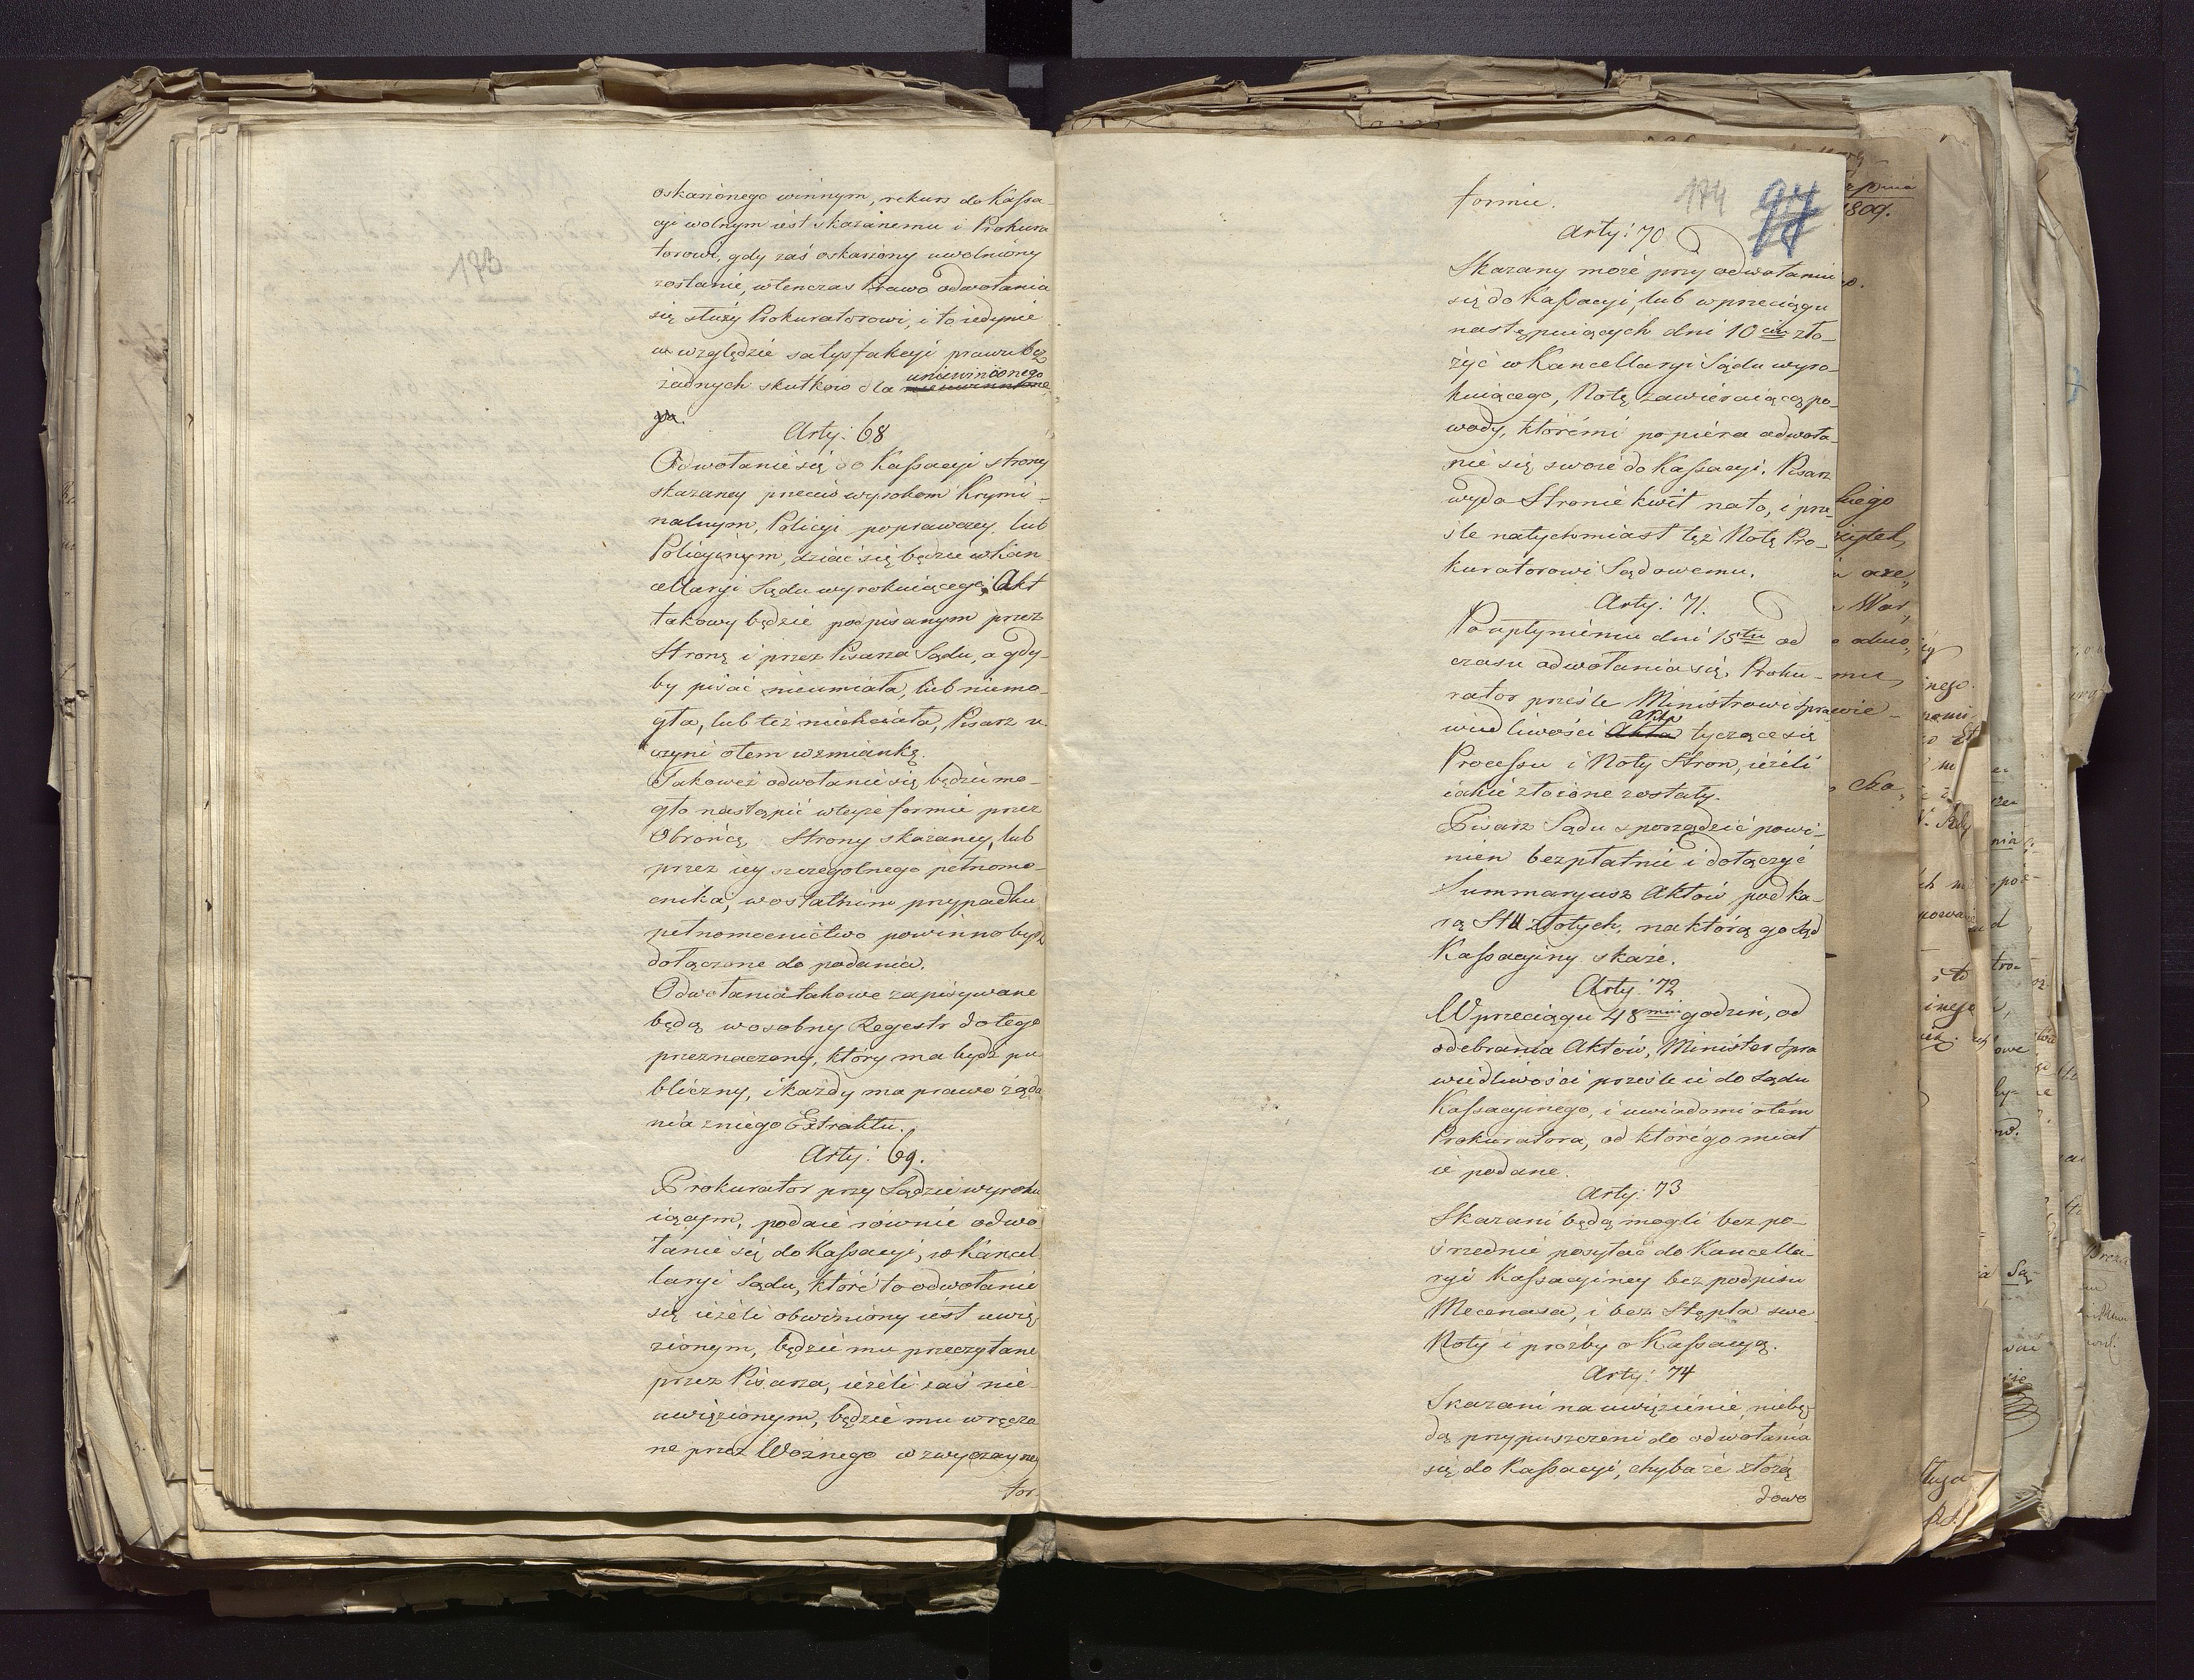 173
oskarżonego winnym, rekurs do Kassa-
cyi wolnym iest skazanemu i Prokura
torowi, gdy zaś oskarżony uwolniony
zostanie, wtenczas Prawo odwołania
się służy Prokuratorowi, i to iedynie
w względzie satysfakcyi prawu bez
żadnych skutków dla uniewinionego
Arty: 68
Odwołanie się do Kassacyi strony
skazaney przeciw wyrokom Krymi-
nalnym, Policyi poprawczey lub
Policyinym, dziać się będzie w Kan
cellaryi Sądu wyrokuiącego; Akt
takowy będzie podpisanym przez
Stronę i przez Pisarza Sądu, a gdy-
by pisać nieumiała, lub niemo-
gła, lub też niechciała, Pisarz u-
czyni otem wzmiankę.
Takoweż odwołanie się będzie mo-
gło nastąpić wteyże formie przez
Obrońcę Strony skazaney, lub
przez iey szczegolnego pełnomo-
cnika, w ostatnim przypadku
pełnomocnictwo powinno bydź
dołączone do podania.
Odwołania takowe zapisywane
będą w osobny Regestr do tego
przeznaczony, który ma bydź pu-
bliczny, i każdy ma prawo żąda
nia zniego Extraktu.
Arty: 69.
Prokurator przy Sądzie wyroku
iącym, podaie równie odwo
łanie się do Kassacyi, w Kancel
laryi Sądu, które to odwołanie
się ieżeli obwiniony iest uwię
zionym, będzie mu przeczytane
przez Pisarza, ieżeli zaś nie-
uwięzionym, będzie mu wręczo
ne przez Woźnego w zwyczayney
for-
174
97
formie.
Arty: 70
Skazany może przy odwołaniu
się do Kassacyi, lub w przeciągu
następuiących dni 10ciu zło-
żyć w Kancellaryi Sądu wyro-
kuiącego, Notę zawieraiącą po-
wody, któremi popiera odwoła-
nie się swoie do Kassacyi. Pisarz
wyda Stronie kwit na to, i prze-
śle natychmiast też Notę Pro-
kuratorowi Sądowemu.
Arty: 71.
Po upłynieniu dni 15tu od
czasu odwołania się, Proku-
rator prześle Ministrowi Spra
wiedliwości akta tyczące się
Processu i Noty Stron, ieżeli
iakie złożone zostały.
Pisarz Sądu sporządzić powi-
nien bezpłatnie i dołączyć
Summaryusz Aktów pod ka-
rą Stu złotych, na którą go Sąd
Kassacyiny skaże.
Arty: 72
W przeciągu 48miu godzin, od
odebrania Aktów, Minister Spra
wiedliwości prześle ie do Sądu
Kassacyinego, i uwiadomi otém
Prokuratora, od którego miał
ie podane.
Arty: 73
Skazani będą mogli bez po-
średnie posyłać do Kancella-
ryi Kassacyiney bez podpisu
Mecenasa, i bez Stępla swe
Noty i prośby o Kassacyą.
Arty: 74
Skazani na uwięzienie, niebę-
dą przypuszczeni do odwołania
się do Kassacyi, chyba że złożą
dowo
1809.